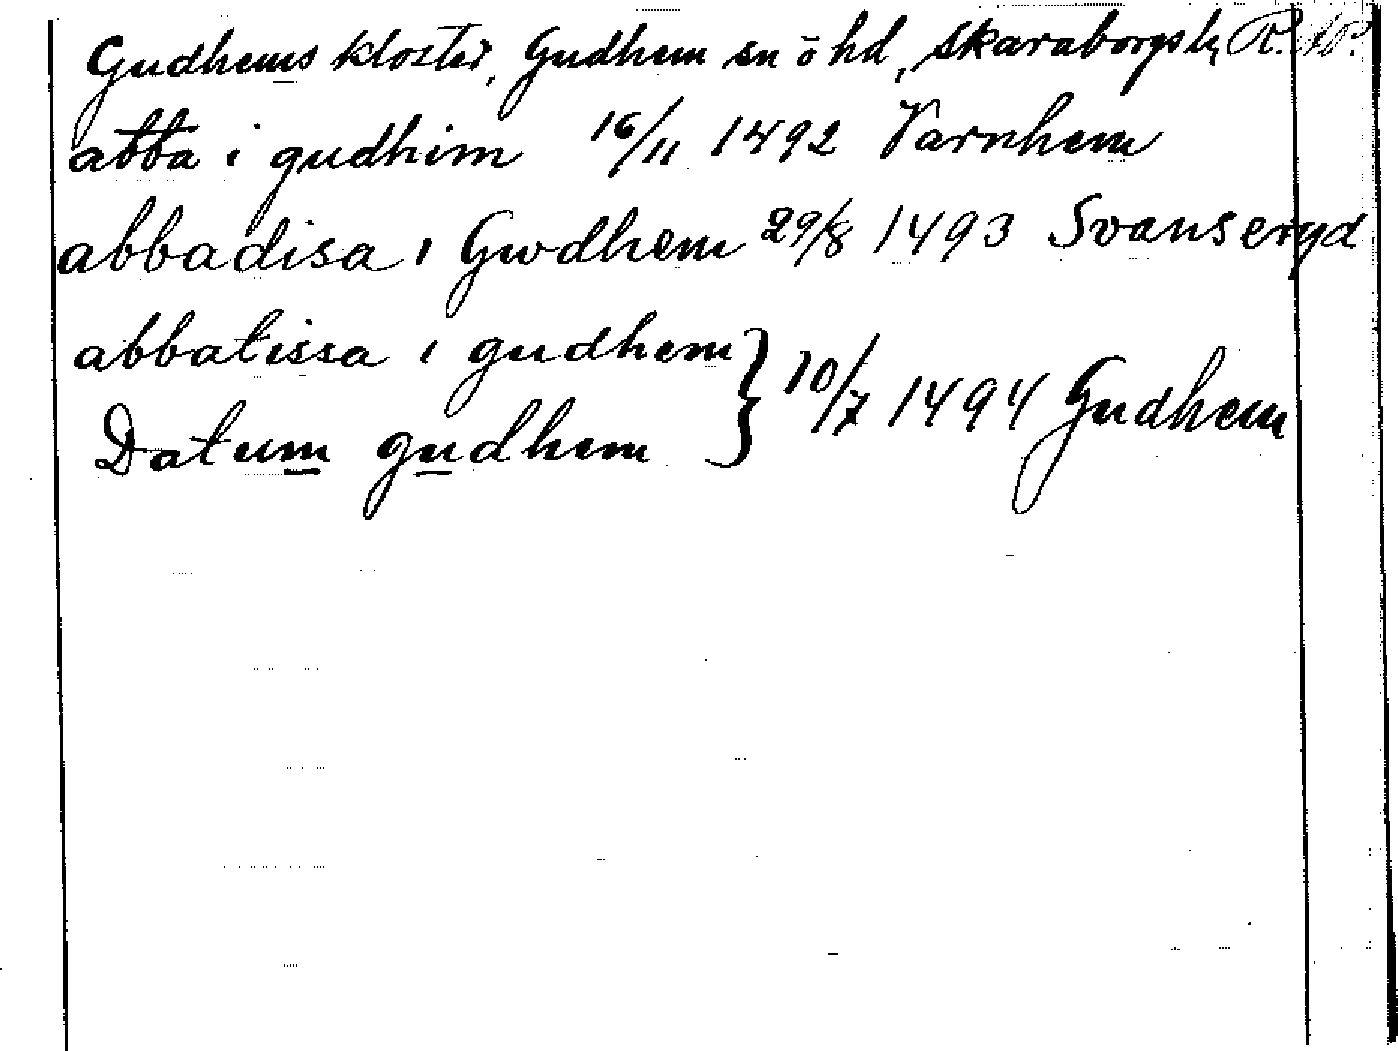 Gudhems kloster, Gudhem sn o hd, Skaraborgs l, R. AP.
abba i gudhim 16/11 1492 Varnhem
abbadisa i Gwdhem 29/8 1493 Svanseryd
abbatissa i gudhem } 10/7 1494 Gudhem
Datum gudhem